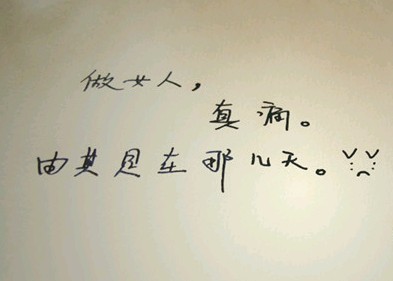 做女人，
真痛。
由其是在那几天。